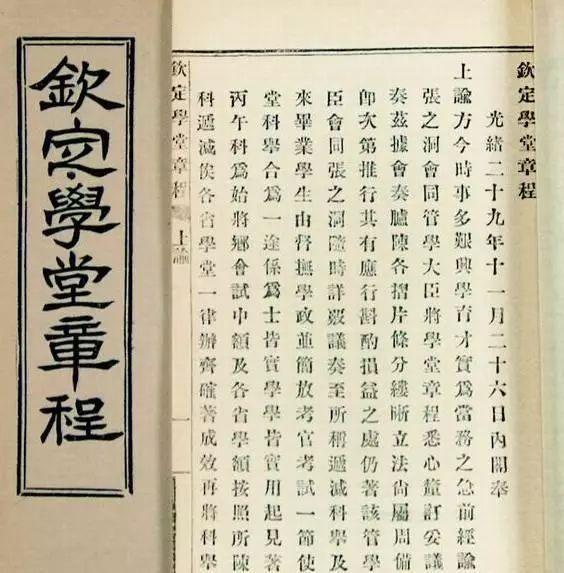 欽定學堂章程
欽定學堂章程
光緒二十九年十一月二十六日內閣奉
上諭方今時事多艱興學育才實爲當務之急前經諭
張之洞會同管學大臣將學堂章程悉心釐訂妥議
奏茲據會奏臚陳各摺片條分縷晰立法尙屬周備
卽次第推行其有應行斟酌損益之處仍著該管學
臣會同張之洞隨時詳覈議奏至所稱遞減科舉及
來畢業學生由督撫學政並簡放考官考試一節使
堂科舉合爲一途係爲士皆實學學皆實用起見著
丙午科爲始將鄉會試中額及各省學額按照所陳
科遞減俟各省學堂一律辦齊確著成效再將科舉
欽定學堂章程 上諭 一